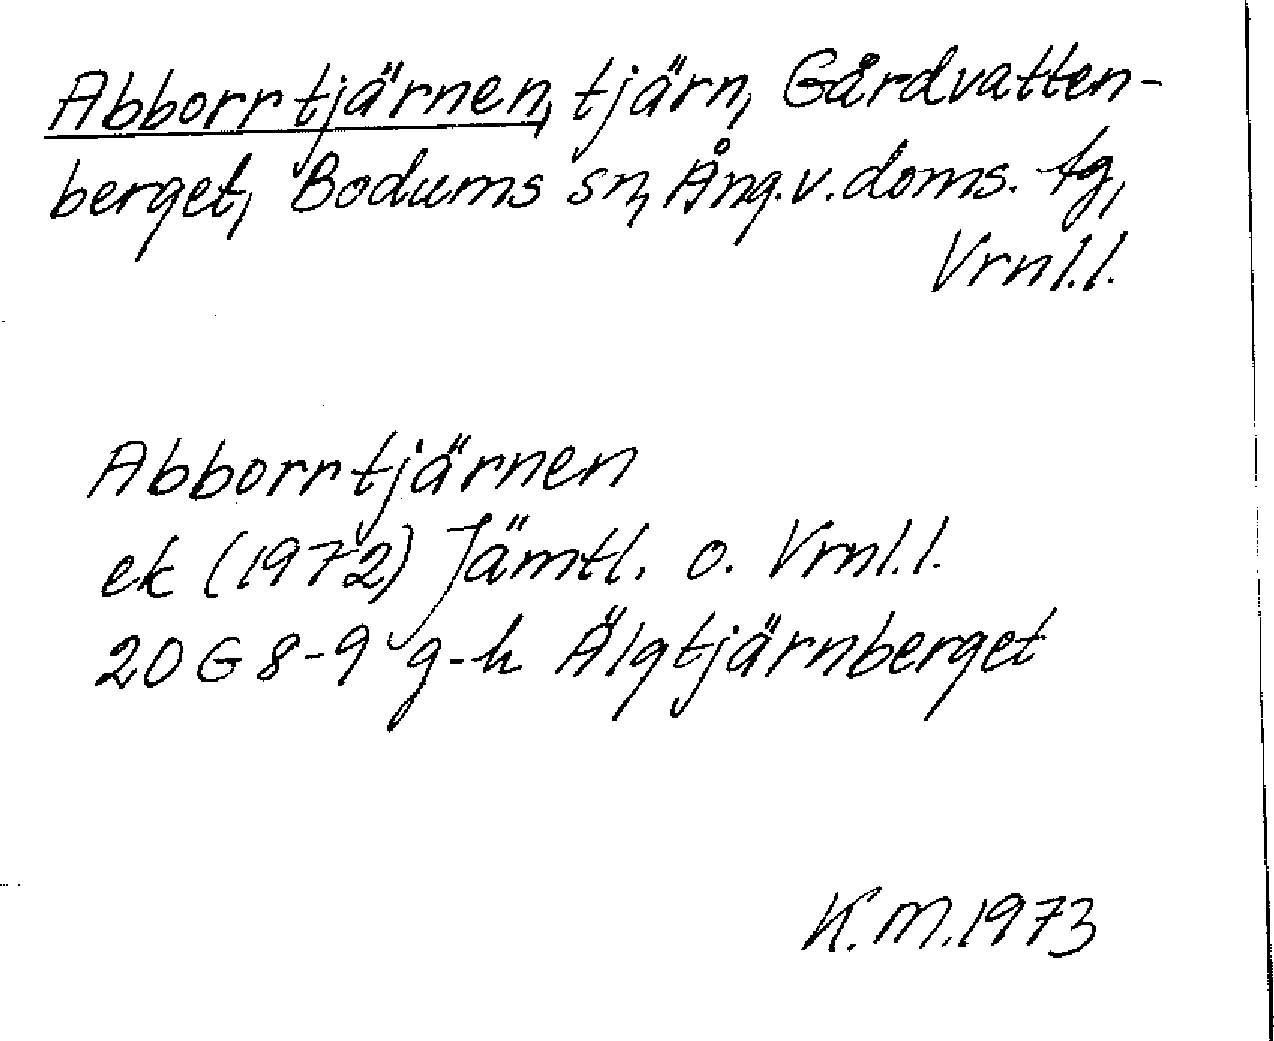 Abborrtjärnen, tjärn, Gårdvatten-
berget, Bodums sn, Ång.v.doms. tg,
Vrnl.l.
Abborrtjärnen
ek (1972) Jämtl. o. Vrnl.l.
20 G 8-9 g-h Älgtjärnberget
K.M.1973